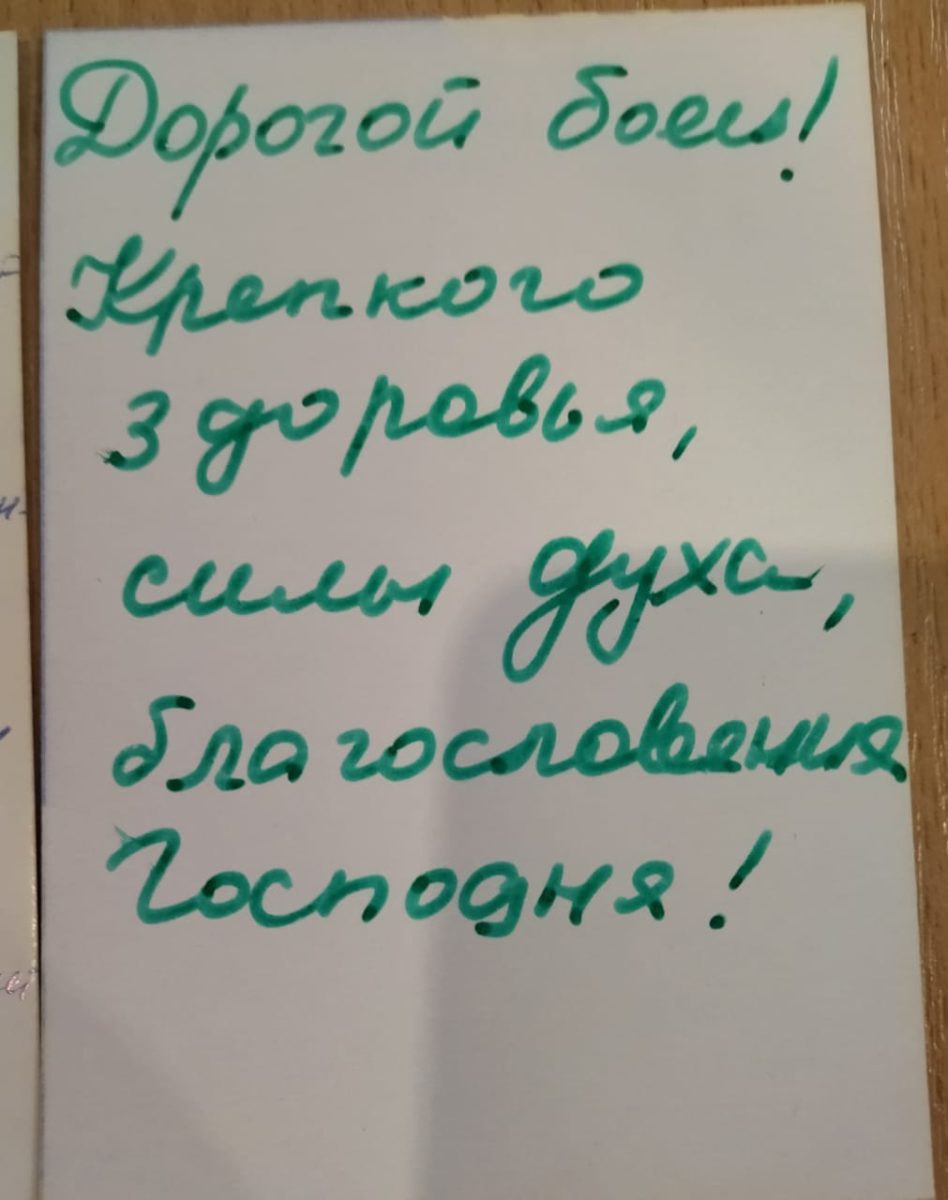 Дорогой боец!
Крепкого
здоровья,
силы духа,
благословения
Господня!